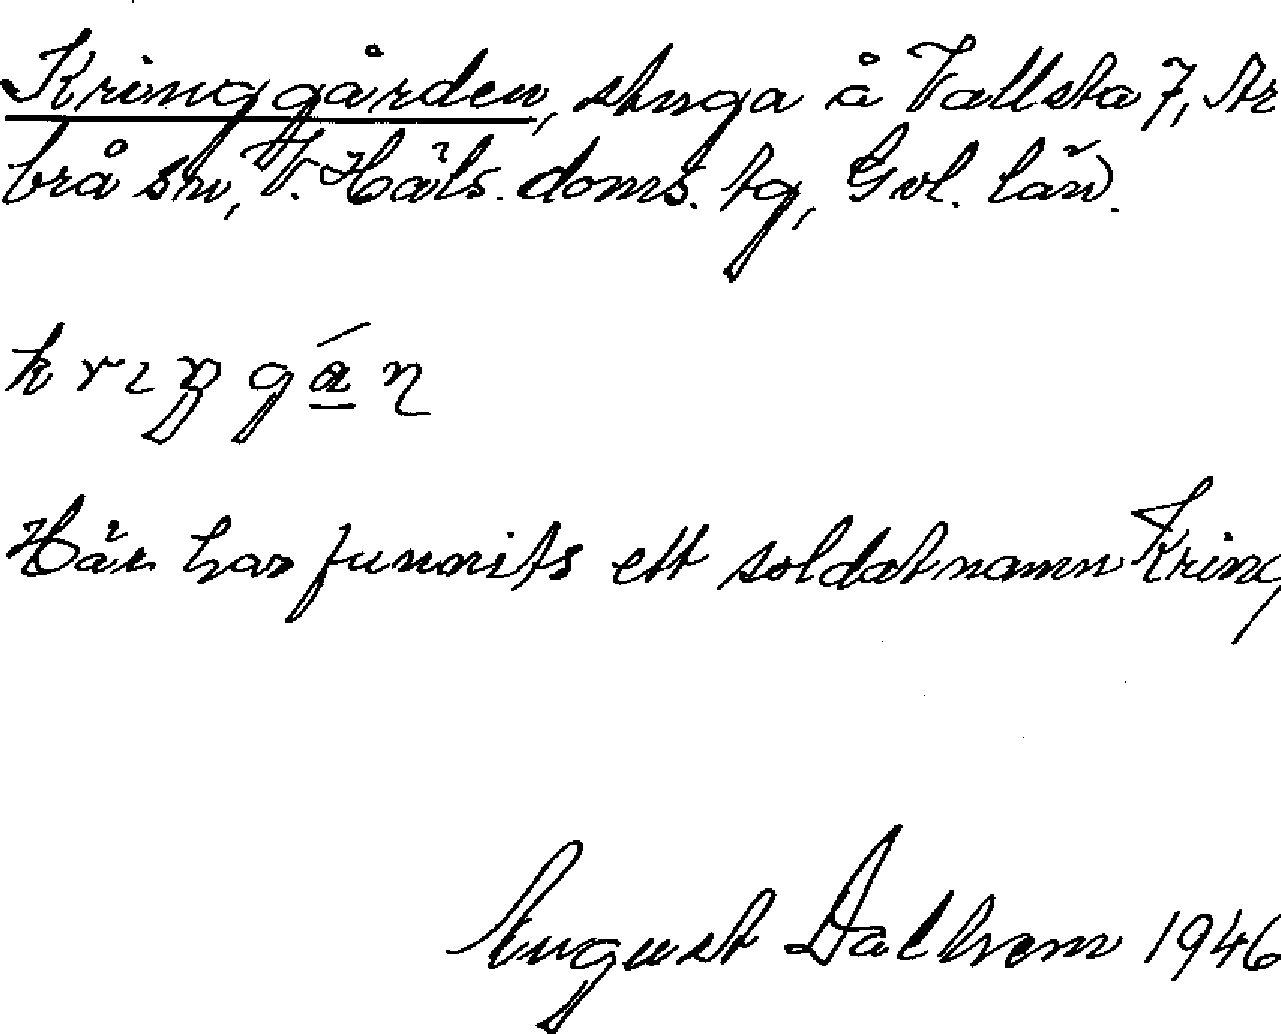 Kringgården, stuga å Vallsta 7, Ar
brå sn, V. Häls. doms. tg, Gvl. län.
krıŋgá̱ɳ
Här har funnits ett soldatnamn Kring
August Dalhem 1946